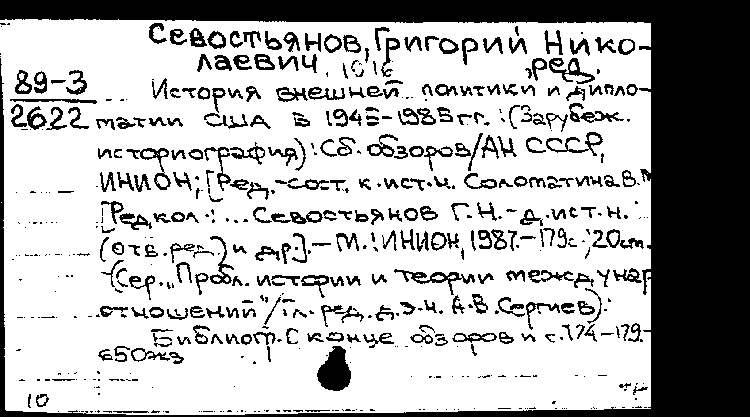 Севостьянов, Григорий Нико-
лаевич, 1916 , ред.
89-3 История внешней политики и дипло-
2622 матии США в 1945-1985 гг. : (Зарубеж.
историография) : Сб. обзоров / АН СССР,
ИНИОН; [Ред.-сост. к.ист.н. Соломатина В.М
[Редкол.: ... Севостьянов Г.Н. - д.ист.н.
(отв. ред.) и др.]. - М. : ИНИОН, 1987. - 179с.; 20см.
(Сер. „Пробл. истории и теории междунар
отношений" / Гл. ред. д.э.н. А.В. Сергиев).
Библиогр. в конце обзоров и с. 174-179.-
650экз
10